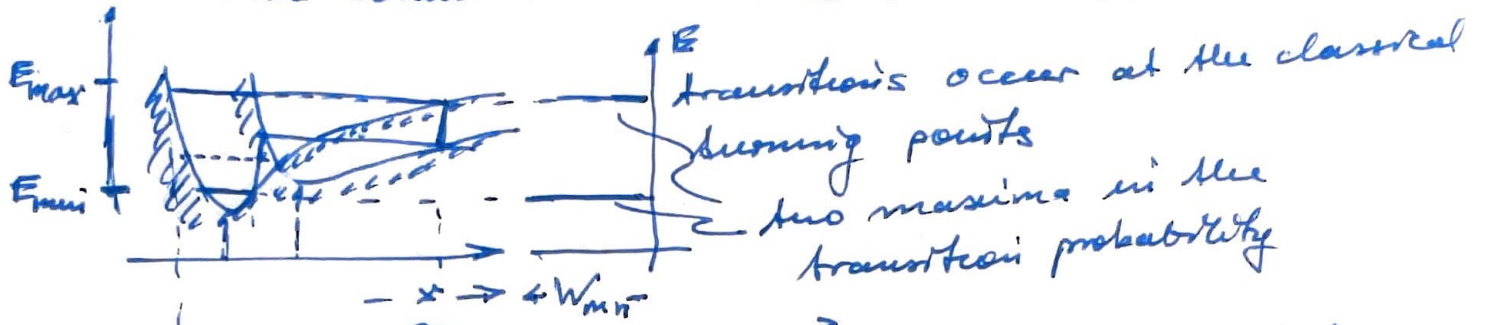 E
Emax
transitions occur at the classical
turning points
Emin
two maxima in the
transition probability
x
Wmn